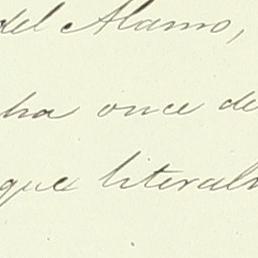 del Alamo,
ha once de
que literal